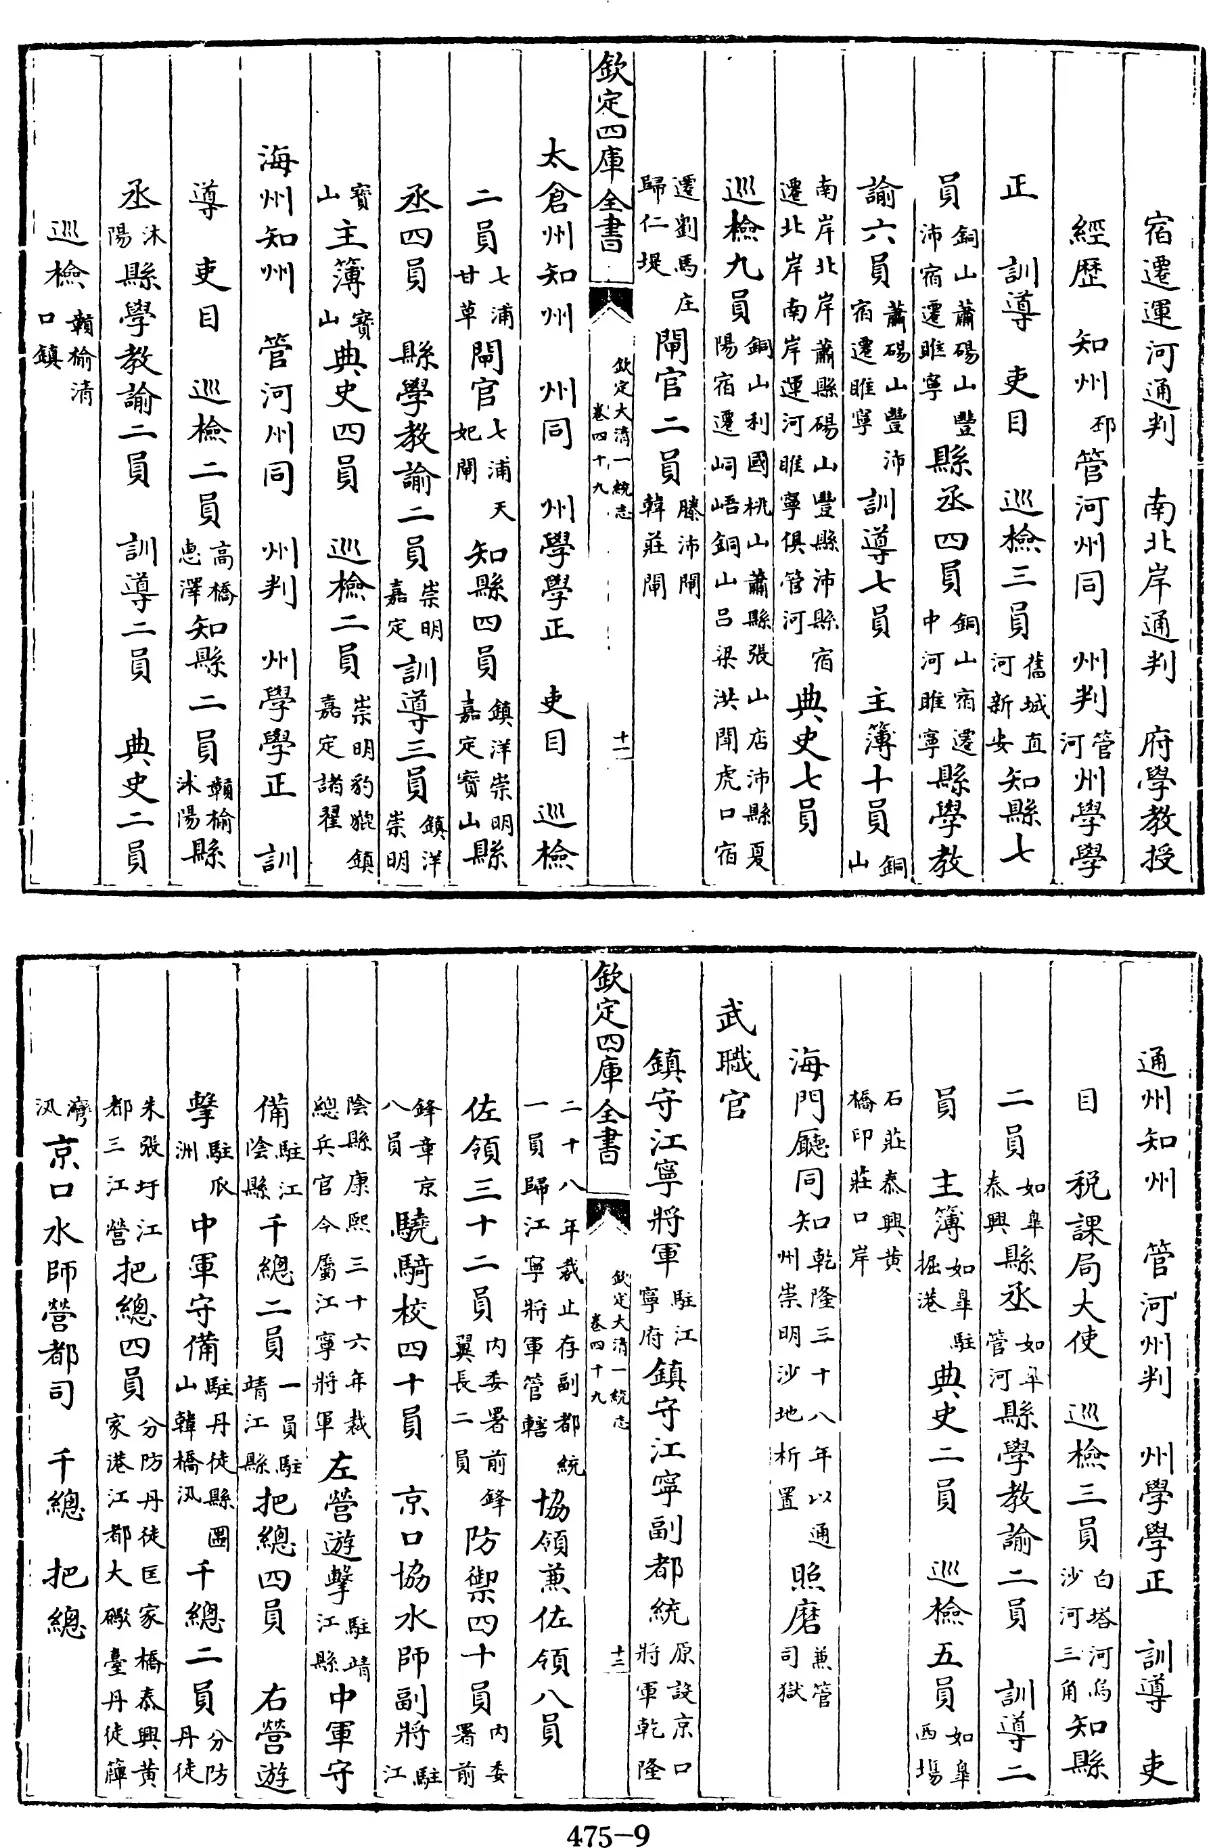 宿遷運河通判　南北岸通判　府學教授
經歷　知州邳管河州同　州判管河州學學
正　訓導　吏目　巡檢三員舊城直河新安知縣七
員銅山蕭碭山豐沛宿遷睢寧縣丞四員銅山宿遷中河睢寧縣學教
諭六員蕭碭山豐沛宿遷睢寧訓導七員　主簿十員銅山
南岸北岸蕭縣碭山豐縣沛縣宿遷北岸南岸運河睢寧俱管河典史七員
巡檢九員銅山利國桃山蕭縣張山店沛縣夏陽宿遷峒峿銅山呂梁洪閘虎口宿
遷劉馬庄歸仁堤閘官二員滕沛閘韓莊閘
欽定四庫全書　欽定大清一統志卷四十九　十一
太倉州知州　州同　州學學正　吏目　巡檢
二員七浦甘草閘官七浦天妃閘知縣四員鎮洋崇明嘉定寶山縣
丞四員　縣學教諭二員崇明嘉定訓導三員鎮洋崇明
寶山主簿寶山典史四員　巡檢二員崇明豹貔鎮嘉定諸翟
海州知州　管河州同　州判　州學學正　訓
導　吏目　巡檢二員高橋惠澤知縣二員贛榆沭陽縣
丞沭陽縣學教諭二員　訓導二員　典史二員
巡檢贛榆清口鎮
通州知州　管河州判　州學學正　訓導　吏
目　税課局大使　巡檢三員白塔河烏沙河三角知縣
二員如臯泰興縣丞如臯管河縣學教諭二員　訓導二
員　主簿如臯駐掘港典史二員　巡檢五員如臯西塲
石莊泰興黄橋印莊口岸
海門廳同知乾隆三十八年以通州崇明沙地析置照磨兼管司獄
武職官
鎮守江寧將軍駐江寧府鎮守江寧副都統原設京口將軍乾隆
欽定四庫全書　欽定大清一統志卷四十九　十二
二十八年裁止存副都統一員歸江寧將軍管轄協領兼佐領八員
佐領三十二員内委署前鋒翼長二員防禦四十員内委署前
鋒章京八員驍騎校四十員　京口協水師副將駐江
陰縣康熙三十六年裁總兵官今屬江寧將軍左營遊擊駐靖江縣中軍守
備駐江陰縣千總二員一員駐靖江縣把總四員　右營遊
擊駐瓜洲中軍守備駐丹徒縣圌山韓橋汛千總二員分防丹徒
朱張圩江都三江營把總四員分防丹徒匡家橋泰興黄家港江都大礮臺丹徒簰
灣汛京口水師營都司　千總　把總
475-9